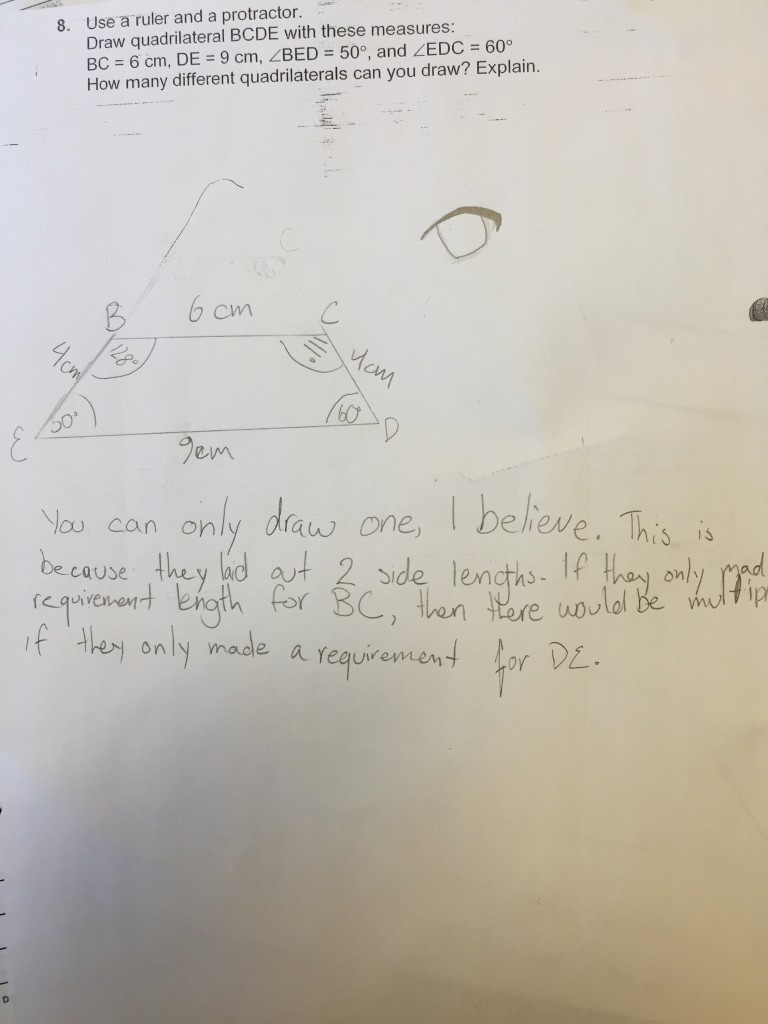 8. Use a ruler and a protractor.
Draw quadrilateral BCDE with these measures:
BC = 6 cm, DE = 9 cm, ∠BED = 50°, and ∠EDC = 60°
How many different quadrilaterals can you draw? Explain.
C
B 6 cm C
4cm 128° 111° 4cm
50° 60°
E D
9cm
You can only draw one, I believe. This is
because they laid out 2 side lengths. If they only mad
requirement length for BC, then there would be multip
if they only made a requirement for DE.
D